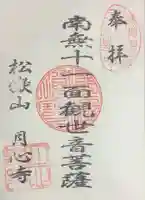 奉拝
南無十一面観世音菩薩
松巌山
円心寺